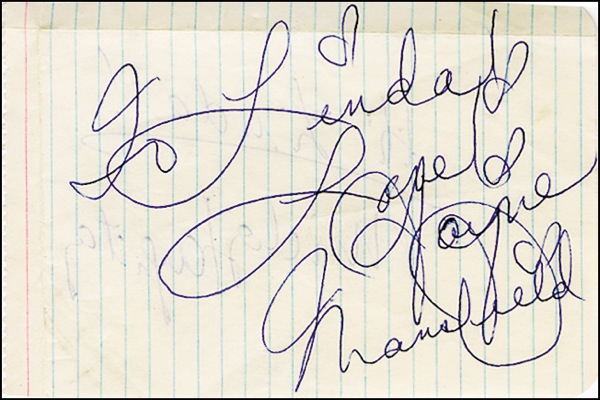 To Linda
Love
Jayne
Mansfield